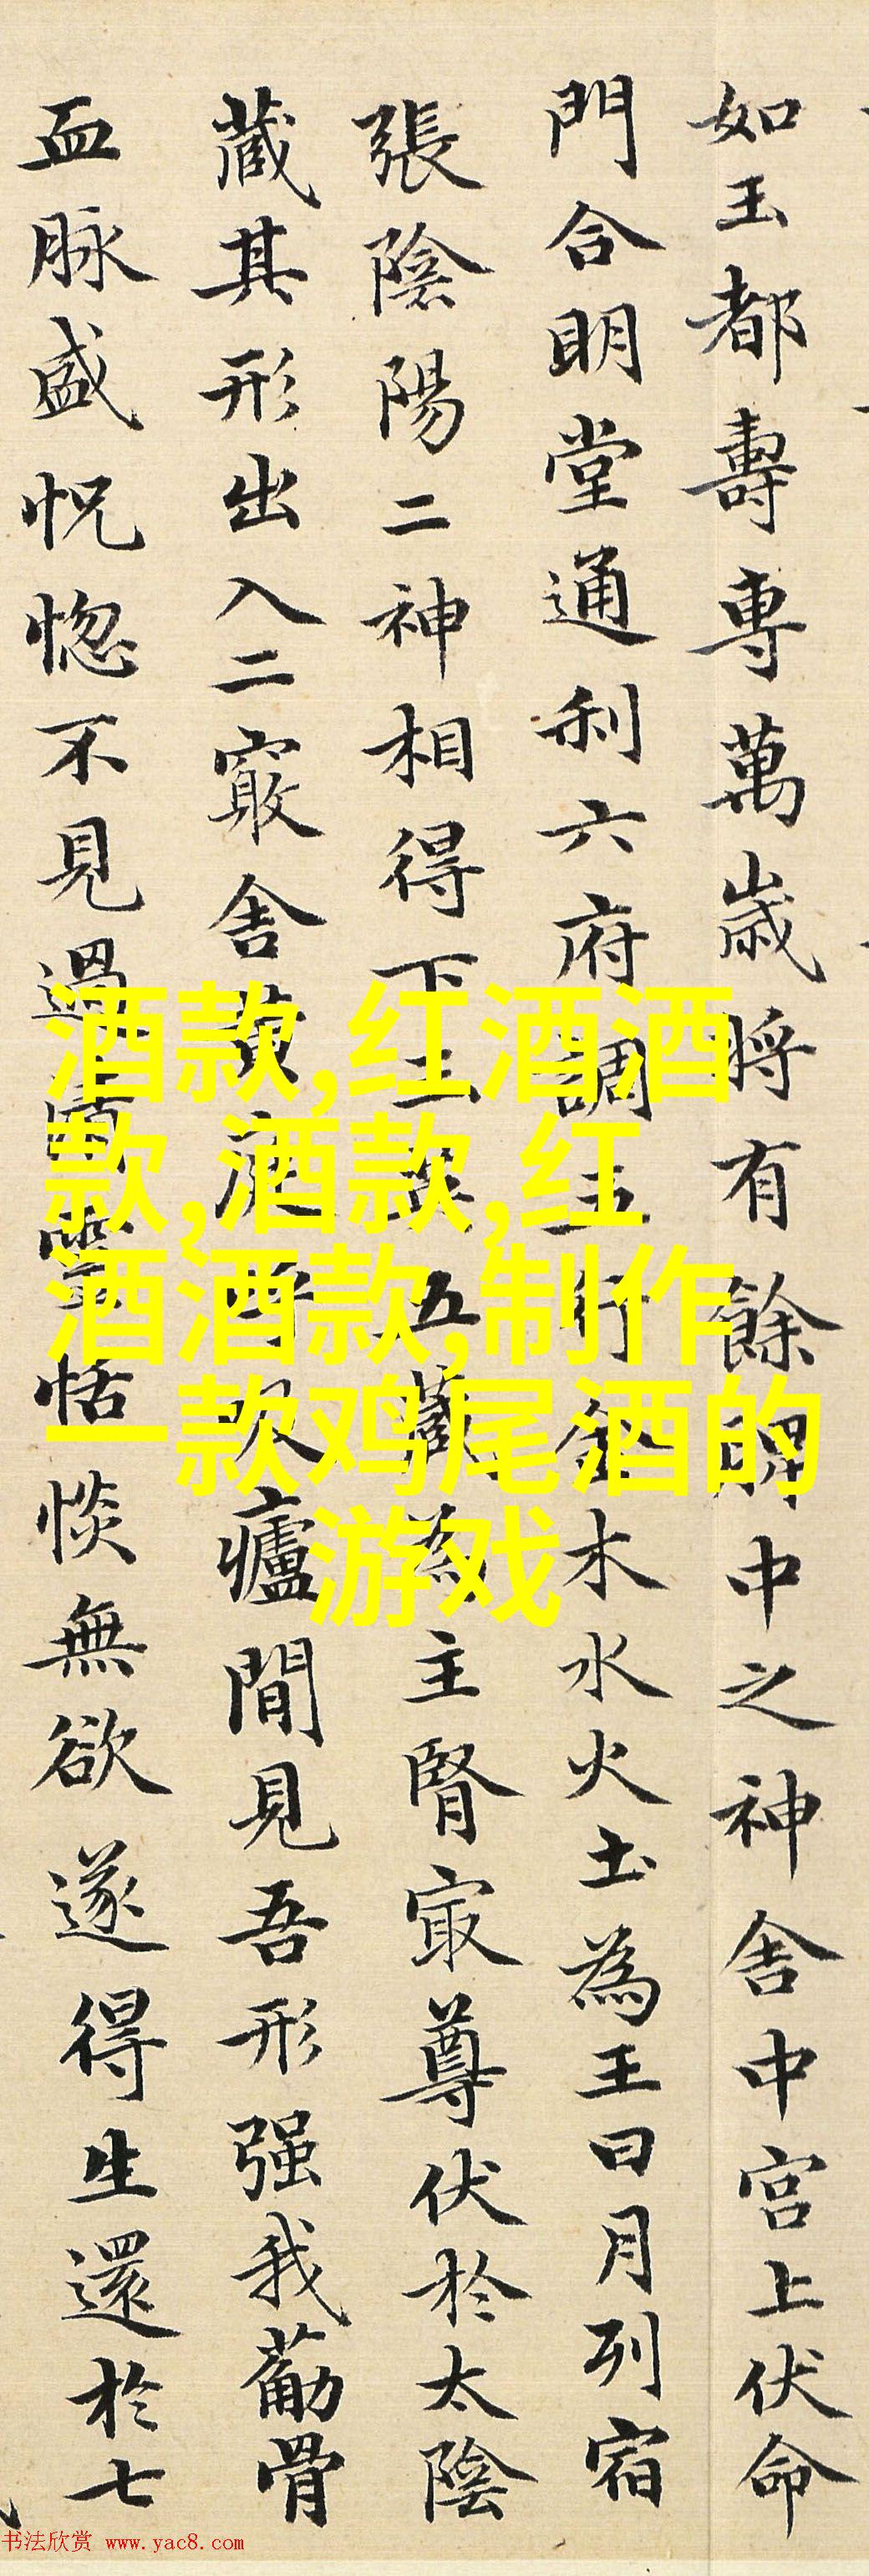 如玉都壽專萬歲將有餘脾中之神舍中宮上伏命
門合明堂通利六府調五行金木水火土為王日月列宿
張陰陽二神相得下玉英五藏為主腎寂尊伏於太陰
藏其形出入二竅舍黃庭呼吸廬間見吾形强我葍骨
血脉盛怳惚不見過清靈恬惔無欲遂得生還於七
酒款,红酒酒
款,酒款,红
酒酒款,制作
一款鸡尾酒的
游戏
书法欣赏 www.yac8.com